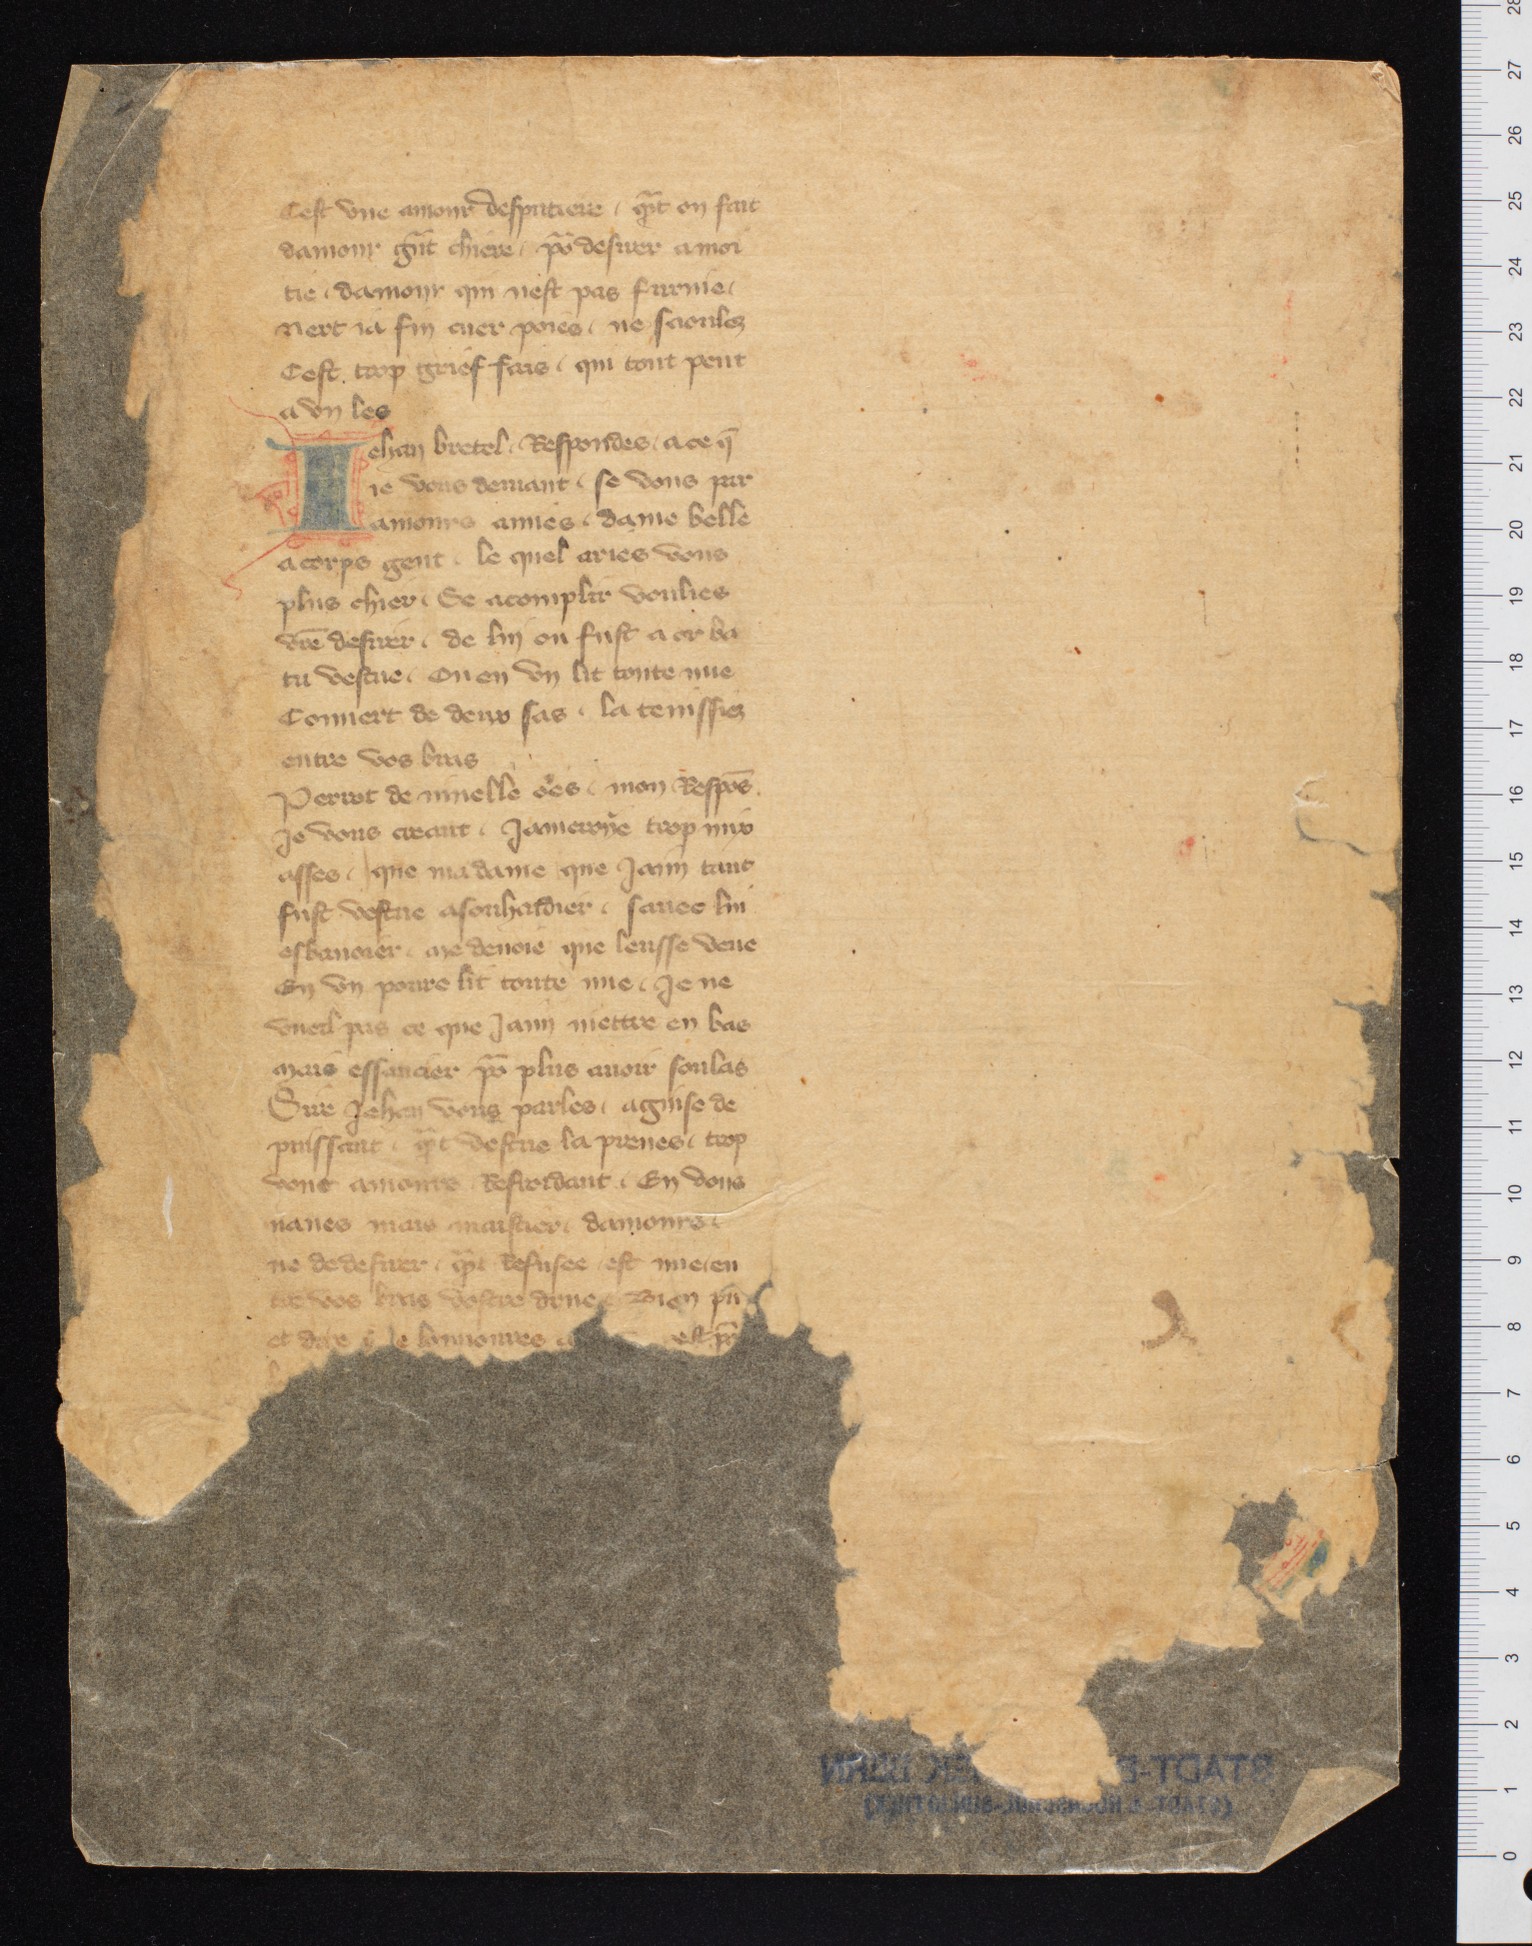 Cest vne amour desputiere / q̃nt on fait
damour g̃nt chiere / po᷑ desirer amoi
tie / damour qui nest pas furnie /
Nert ia fin cuer poies / ne saoulez
Cest trop grief fais / qui tout peut
a vn les
Iehan bretel / Respondes / a ce q̃
ie vous demant / se vous par
amours ames / dame belle
a corps gent / le quel aries vous
plus chier / Se acomplir voulies
vr̃e desirer / de lui ou fust a or ba
tu vestue / Ou en vn lit toute nue
Couuert de deux sas / la tenissiez
entre vos bras
Perrot de niuelle oes / mon Respõs
Je vous creant / Jameroye trop mix
asses / que ma dame que Jaim tant
fust vestue a souhaidier / sauec lui
esbanoier me deuoie que leusse veue
En vn poure lit toute nue / Je ne
vueil pas ce que Jaim mettre en bas
mais essaucier po᷑ plus auoir soulas
Sire Jehan vous parles / a guise de
puissant / q̃nt vestue la prenes / trop
vont amours Refroidant / En vous
naues mais mestier damours /
ne de desirer / q̃nt Refusee est nue en
tre vos bras vostre drue / Bien
et
STADT-B